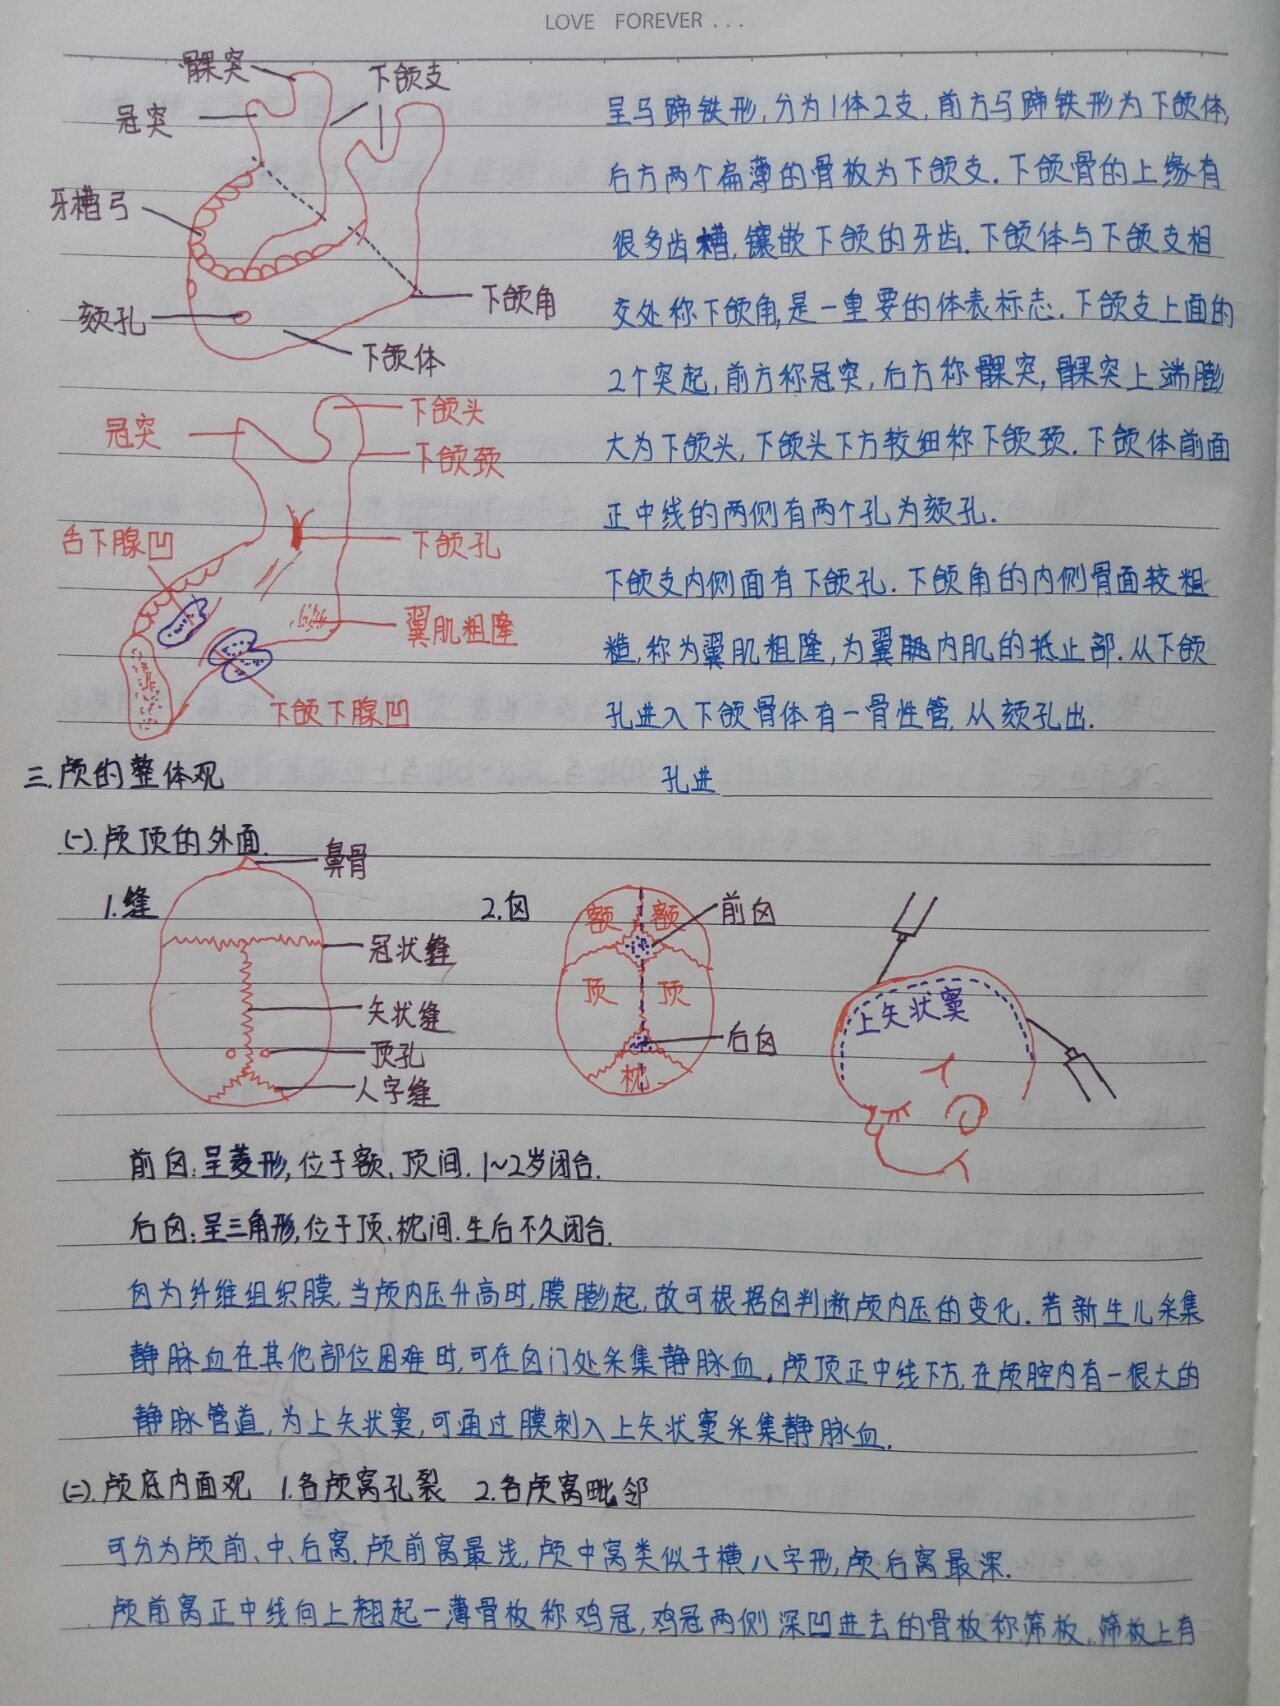 LOVE FOREVER ...
髁突
下颌支
冠突
牙槽弓
颏孔
下颌角
下颌体
呈马蹄铁形,分为1体2支,前方马蹄铁形为下颌体,
后方两个扁薄的骨板为下颌支.下颌骨的上缘有
很多齿槽,镶嵌下颌的牙齿.下颌体与下颌支相
交处称下颌角,是一重要的体表标志.下颌支上面的
2个突起,前方称冠突,后方称髁突,髁突上端膨
大为下颌头,下颌头下方较细称下颌颈.下颌体前面
正中线的两侧有两个孔为颏孔.
下颌支内侧面有下颌孔.下颌角的内侧骨面较粗
糙,称为翼肌粗隆,为翼内肌的抵止部.从下颌
孔进入下颌骨体有一骨性管,从颏孔出.
孔进
下颌头
冠突
下颌颈
舌下腺凹
下颌孔
翼肌粗隆
下颌下腺凹
三.颅的整体观
(一).颅顶的外面.
鼻骨
1.缝
冠状缝
矢状缝
顶孔
人字缝
2.囟
额 额
前囟
顶 顶
后囟
枕
上矢状窦
前囟:呈菱形,位于额、顶间.1~2岁闭合.
后囟:呈三角形,位于顶、枕间.生后不久闭合.
囟为纤维组织膜,当颅内压升高时,膜膨起,故可根据囟判断颅内压的变化.若新生儿采集
静脉血在其他部位困难时,可在囟门处采集静脉血.颅顶正中线下方,在颅腔内有一很大的
静脉管道,为上矢状窦,可通过膜刺入上矢状窦采集静脉血.
(二).颅底内面观 1.各颅窝孔裂 2.各颅窝毗邻
可分为颅前、中、后窝.颅前窝最浅,颅中窝类似于横八字形,颅后窝最深.
颅前窝正中线向上翘起一薄骨板称鸡冠,鸡冠两侧深凹进去的骨板称筛板,筛板上有